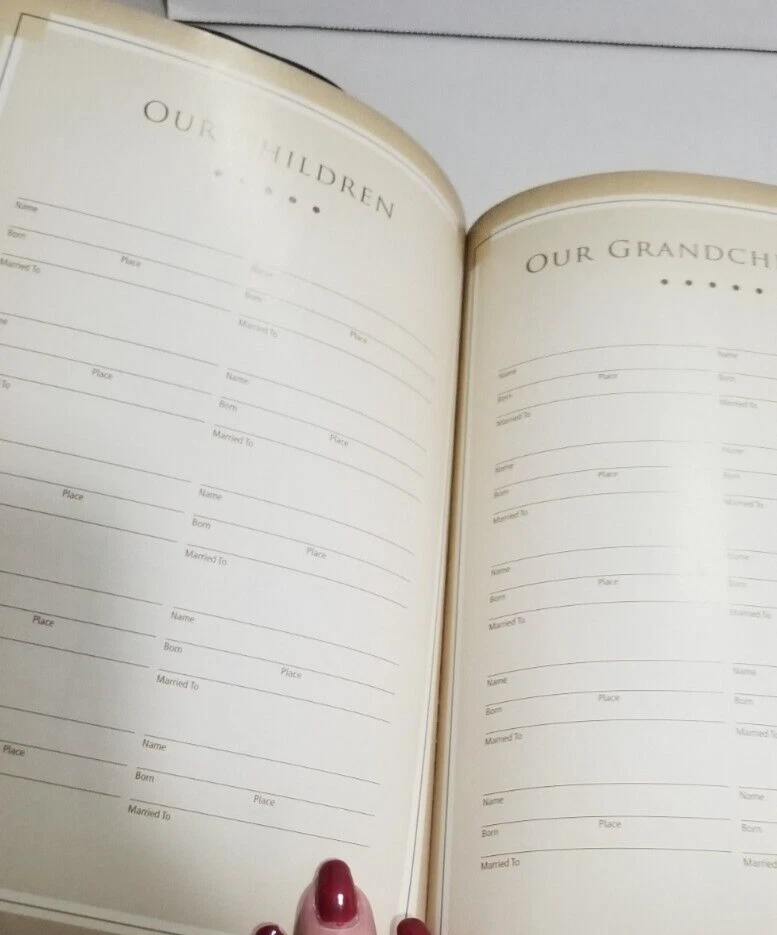 OUR CHILDREN
Name
Born Place
Married To
me
Place
To
Place
Place
Place
Name
Born Place
Married To
Name
Born Place
Married To
Name
Born Place
Married To
Name
Born Place
Married To
Name
Born Place
Married To
OUR GRANDCH
Name
Born Place
Married To
Name
Born Place
Married To
Name
Born Place
Married To
Name
Born Place
Married To
Name
Born Place
Married To
Name
Born
Married To
Name
Born
Married To
Name
Born
Married To
Name
Born
Married To
Name
Born
Married